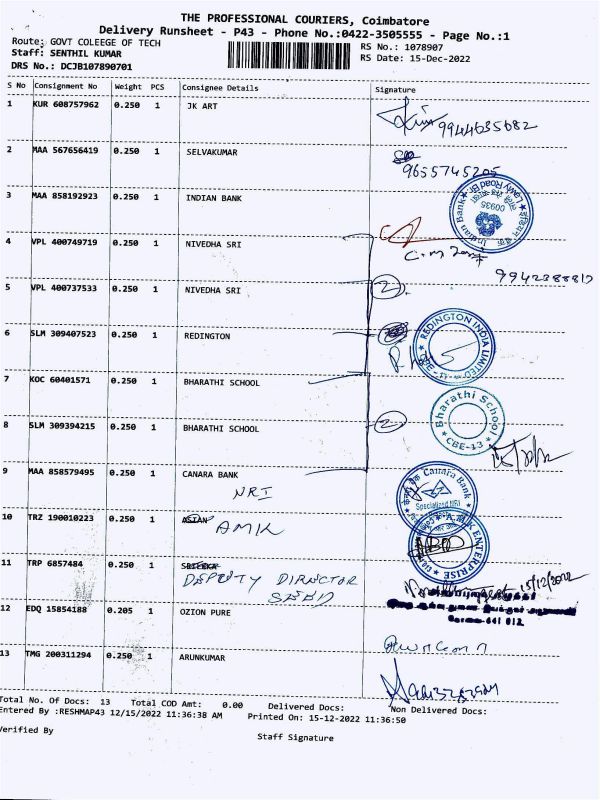 THE PROFESSIONAL COURIERS, Coimbatore
Delivery Runsheet - P43 - Phone No.:0422-3505555 - Page No.:1
Route: GOVT COLEEGE OF TECH
RS No.: 1078907
Staff: SENTHIL KUMAR
RS Date: 15-Dec-2022
DRS No.: DCJB107890701
S No Consignment No Weight PCS Consignee Details Signature
1 KUR 608757962 0.250 1 JK ART
9944635682
2 MAA 567656419 0.250 1 SELVAKUMAR
9655745205
3 MAA 858192923 0.250 1 INDIAN BANK
Indian Bank
00935
4 VPL 400749719 0.250 1 NIVEDHA SRI
5 VPL 400737533 0.250 1 NIVEDHA SRI
2
6 SLM 309407523 0.250 1 REDINGTON
REDINGTON INDIA LIMITED
7 KOC 60401571 0.250 1 BHARATHI SCHOOL
8 SLM 309394215 0.250 1 BHARATHI SCHOOL
2
Bharathi School
CBE-13
9 MAA 858579495 0.250 1 CANARA BANK
NRI
Canara Bank
Specialized NRI
10 TRZ 190010223 0.250 1 ASIAN
AMK
A.M.K ENTERPRISE
11 TRP 6857484 0.250 1
DEPUTY DIRECTOR
SEED
15/12/2022
12 EDQ 15854188 0.205 1 OZION PURE
13 TMG 200311294 0.250 1 ARUNKUMAR
Total No. Of Docs: 13 Total COD Amt: 0.00 Delivered Docs: Non Delivered Docs:
Entered By :RESHMAP43 12/15/2022 11:36:38 AM Printed On: 15-12-2022 11:36:50
Verified By
Staff Signature